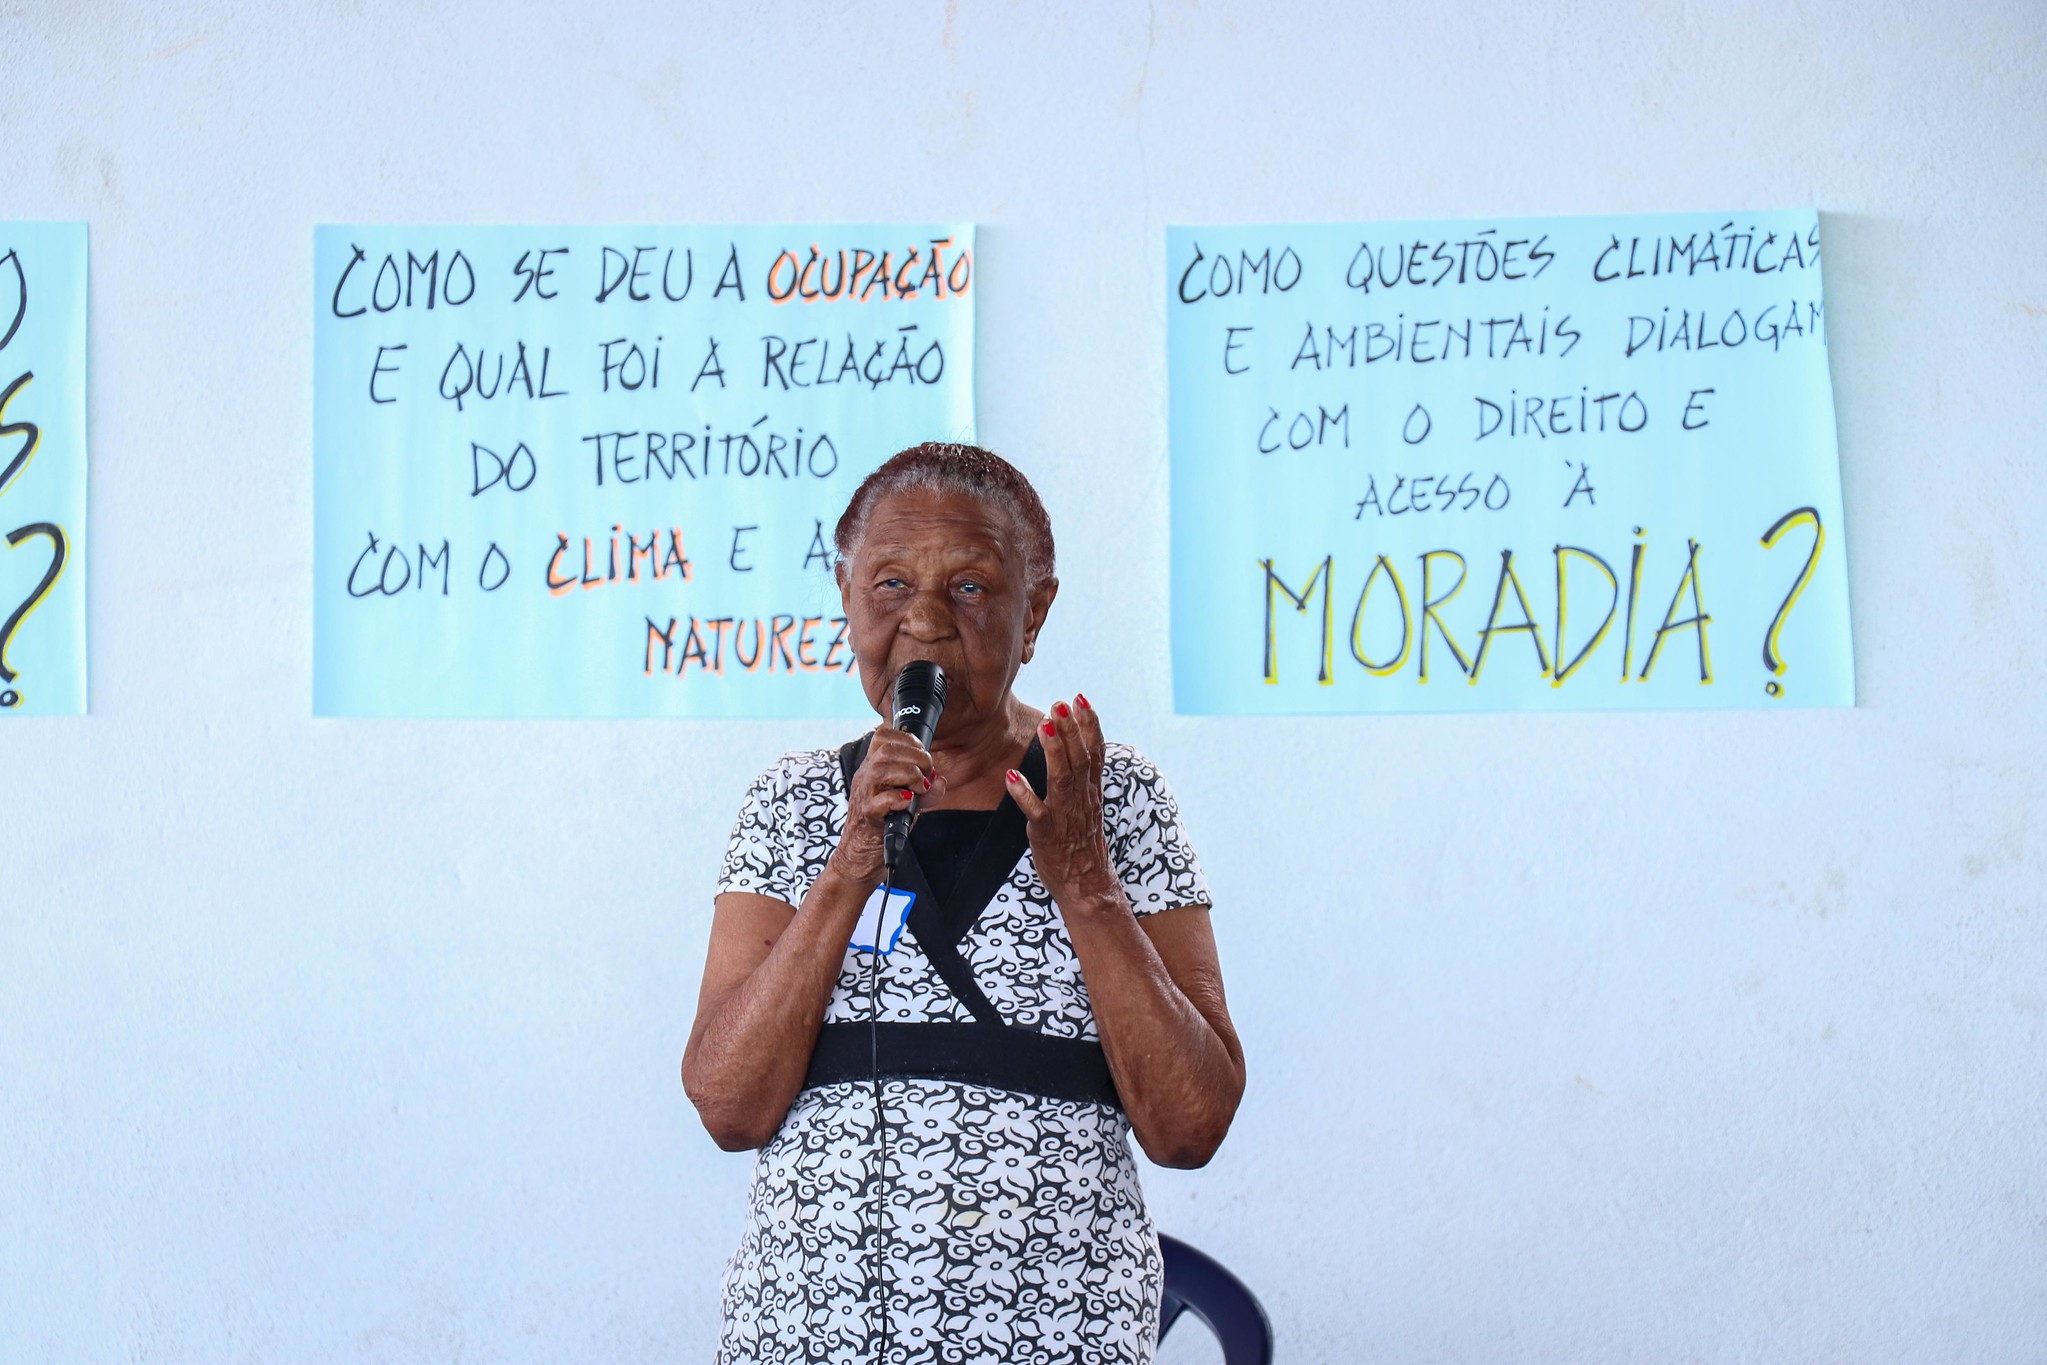 O
S
?
COMO SE DEU A OCUPAÇÃO
E QUAL FOI A RELAÇÃO
DO TERRITÓRIO
COM O CLIMA E A
NATUREZ
COMO QUESTÕES CLIMÁTICAS
E AMBIENTAIS DIALOGAM
COM O DIREITO E
ACESSO À
MORADIA?